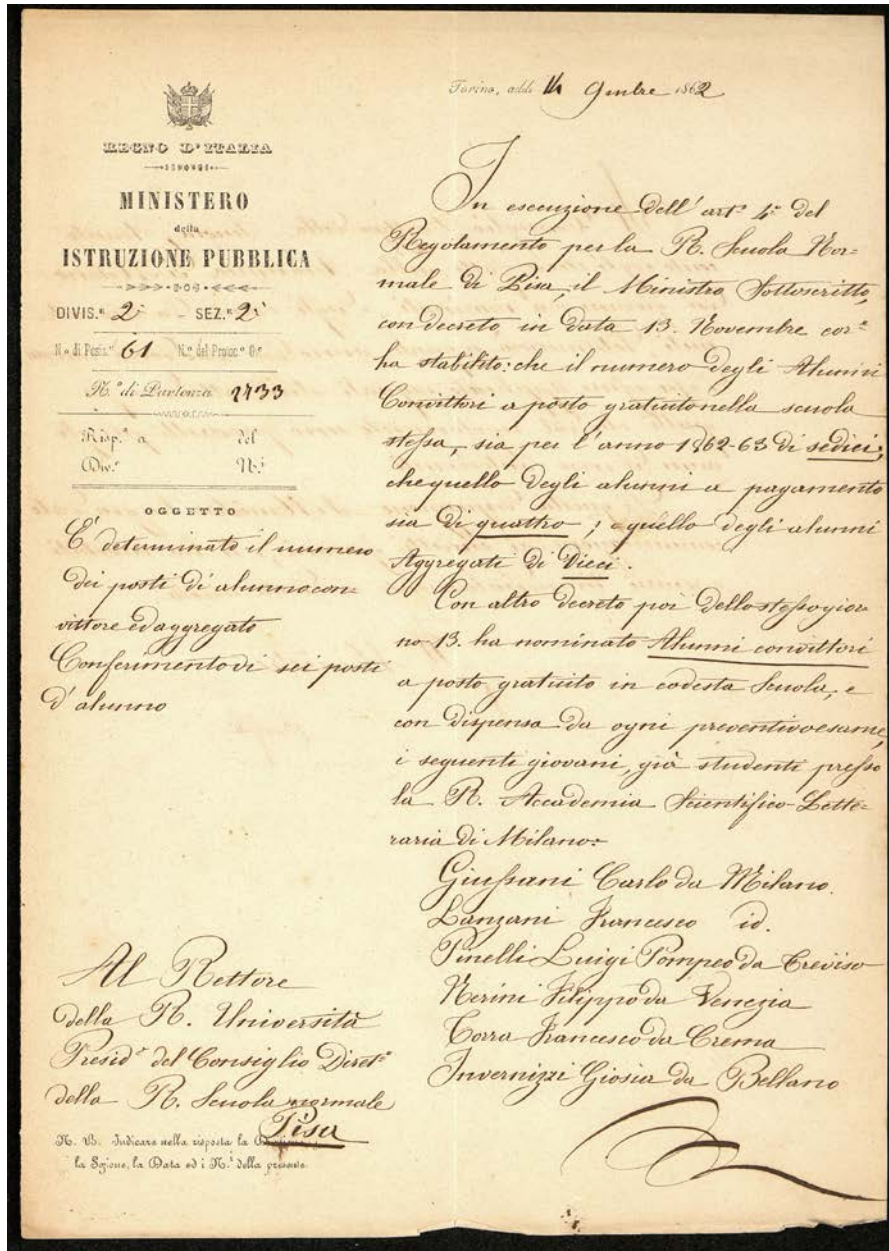 REGNO D'ITALIA
MINISTERO
della
ISTRUZIONE PUBBLICA
DIVIS.e 2a - SEZ.e 2a
N.o di Posiz.e 61 N.o del Protoc.o G.e
N.o di Partenza 2733
Risp.a a del
Div.e N.i
OGGETTO
E' determinato il numero
dei posti di alunno con-
vittore ed aggregato
Conferimento di sei posti
d'alunno
Al Rettore
della R. Università
Presid.e del Consiglio Dirett.o
della R. Scuola normale
Pisa
N. B. Indicare nella risposta la
la Sezione, la Data ed i N.i della presente
Torino, addì 14 9mbre 1862
In esecuzione dell' art.o 4.o del
Regolamento per la R. Scuola Nor-
male di Pisa, il Ministro Sottoscritto,
con decreto in data 13. Novembre cor.e
ha stabilito: che il numero degli Alunni
Convittori a posto gratuito nella scuola
stessa, sia per l'anno 1862-63 di sedici;
che quello degli alunni a pagamento
sia di quattro; e quello degli alunni
Aggregati di Dieci.
Con altro decreto poi dello stesso gior-
no 13. ha nominato Alunni convittori
a posto gratuito in codesta Scuola, e
con dispensa da ogni preventivo esame,
i seguenti giovani, già studenti presso
la R. Accademia Scientifico-Lette-
raria di Milano:
Giussani Carlo da Milano.
Lanzani Francesco id.
Pinelli Luigi Pompeo da Treviso
Nerini Filippo da Venezia
Torra Francesco da Crema
Invernizzi Giosia da Bellano